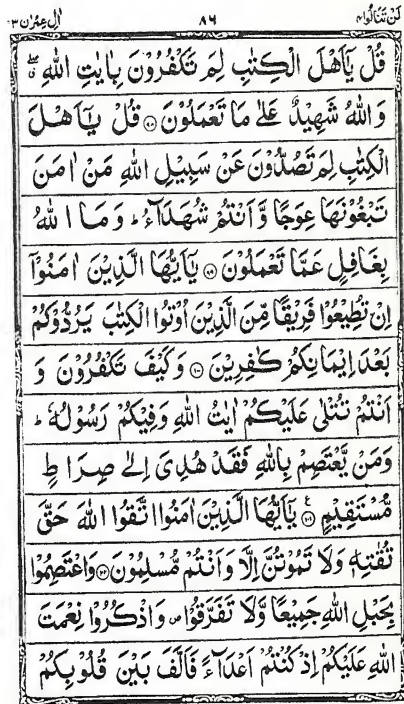 لَنْ تَنَالُوا ٤ ٨٦ اٰلِ عِمْرٰن ٣
قُلْ يٰۤاَهْلَ الْكِتٰبِ لِمَ تَكْفُرُوْنَ بِاٰيٰتِ اللّٰهِ ۖ
وَاللّٰهُ شَهِيْدٌ عَلٰى مَا تَعْمَلُوْنَ ۝ قُلْ يٰۤاَهْلَ
الْكِتٰبِ لِمَ تَصُدُّوْنَ عَنْ سَبِيْلِ اللّٰهِ مَنْ اٰمَنَ
تَبْغُوْنَهَا عِوَجًا وَّاَنْتُمْ شُهَدَآءُ ؕ وَمَا اللّٰهُ
بِغَافِلٍ عَمَّا تَعْمَلُوْنَ ۝ يٰۤاَيُّهَا الَّذِيْنَ اٰمَنُوْۤا
اِنْ تُطِيْعُوْا فَرِيْقًا مِّنَ الَّذِيْنَ اُوْتُوا الْكِتٰبَ يَرُدُّوْكُمْ
بَعْدَ اِيْمَانِكُمْ كٰفِرِيْنَ ۝ وَكَيْفَ تَكْفُرُوْنَ وَ
اَنْتُمْ تُتْلٰى عَلَيْكُمْ اٰيٰتُ اللّٰهِ وَفِيْكُمْ رَسُوْلُهٗ ؕ
وَمَنْ يَّعْتَصِمْ بِاللّٰهِ فَقَدْ هُدِيَ اِلٰى صِرَاطٍ
مُّسْتَقِيْمٍ ۝ يٰۤاَيُّهَا الَّذِيْنَ اٰمَنُوا اتَّقُوا اللّٰهَ حَقَّ
تُقٰتِهٖ وَلَا تَمُوْتُنَّ اِلَّا وَاَنْتُمْ مُّسْلِمُوْنَ ۝ وَاعْتَصِمُوْا
بِحَبْلِ اللّٰهِ جَمِيْعًا وَّلَا تَفَرَّقُوْا ۪ وَاذْكُرُوْا نِعْمَتَ
اللّٰهِ عَلَيْكُمْ اِذْ كُنْتُمْ اَعْدَآءً فَاَلَّفَ بَيْنَ قُلُوْبِكُمْ